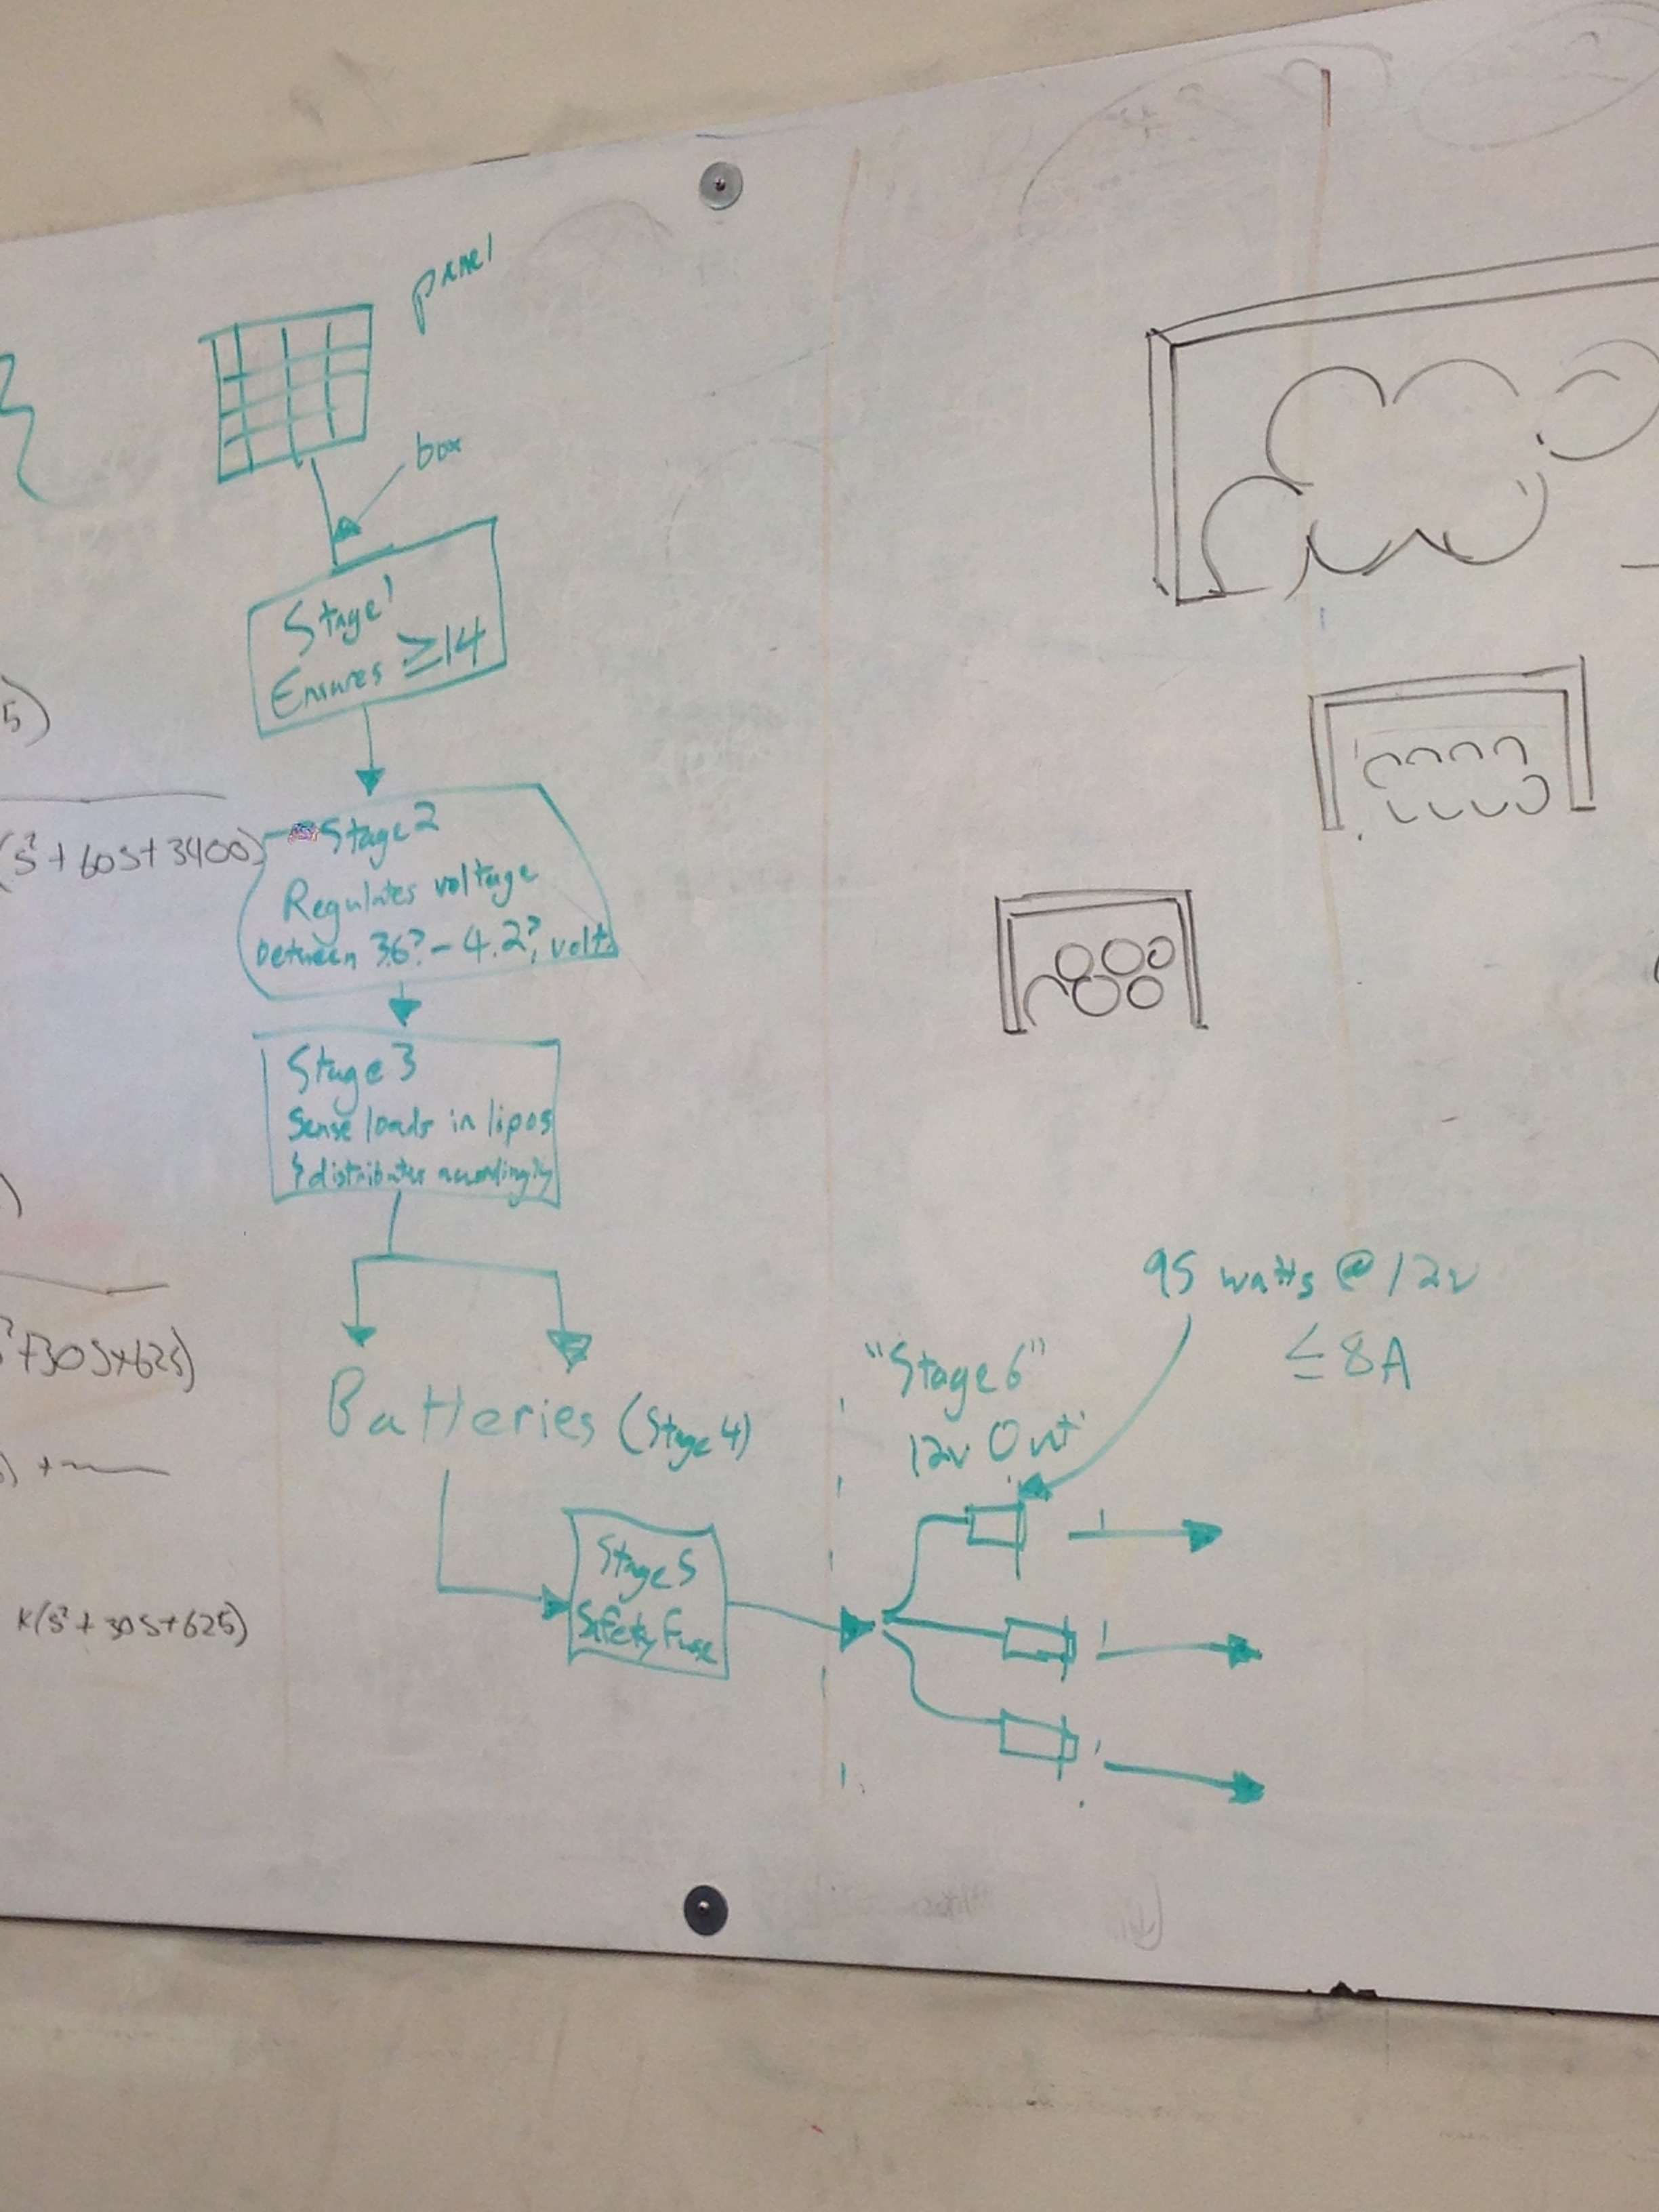 panel
box
Stage 1
Ensures ≥14
Stage 2
Regulates voltage
between 3.6? - 4.2? volts
Stage 3
Sense loads in lipos
& distributes accordingly
Batteries (Stage 4)
Stage 5
Safety Fuse
"Stage 6"
12v Out
95 watts @ 12v
≤ 8A
5)
(s²+60s+3400)
²+30s+625)
K(s²+30s+625)